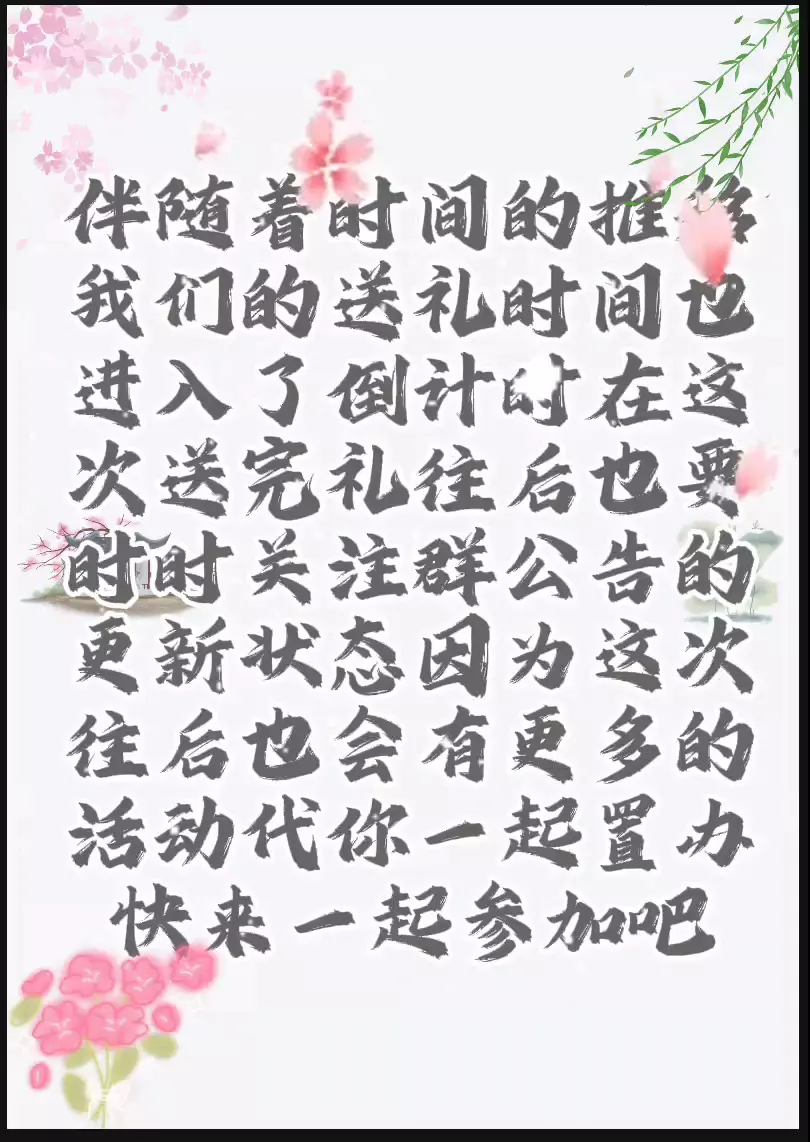 伴随着时间的推移
我们的送礼时间也
进入了倒计时在这
次送完礼往后也要
时时关注群公告的
更新状态因为这次
往后也会有更多的
活动代你一起置办
快来一起参加吧